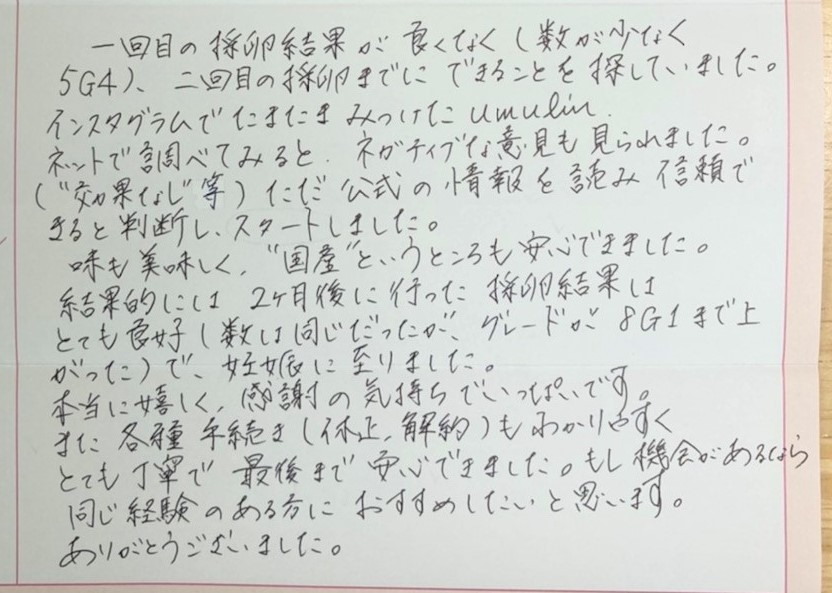 一回目の採卵結果が良くなく(数が少なく
5G4)、二回目の採卵までにできることを探していました。
インスタグラムでたまたまみつけたumulin.
ネットで調べてみると、ネガティブな意見も見られました。
("効果なし"等)ただ公式の情報を読み信頼で
きると判断し、スタートしました。
味も美味しく、"国産"というところも安心できました。
結果的には2ヶ月後に行った採卵結果は
とても良好(数は同じだったが、グレードが8G1まで上
がった)で、妊娠に至りました。
本当に嬉しく、感謝の気持ちでいっぱいです。
また各種手続き(休止、解約)もわかりやすく
とても丁寧で最後まで安心できました。もし機会があるなら
同じ経験のある方におすすめしたいと思います。
ありがとうございました。